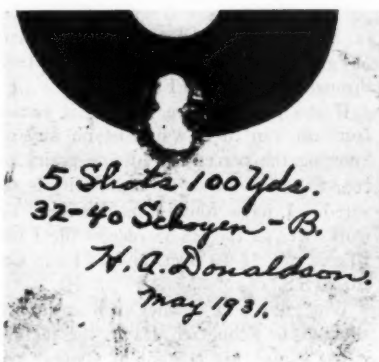 5 Shots 100 Yds.
32-40 Schoyen-B.
H. A. Donaldson.
May 1931.